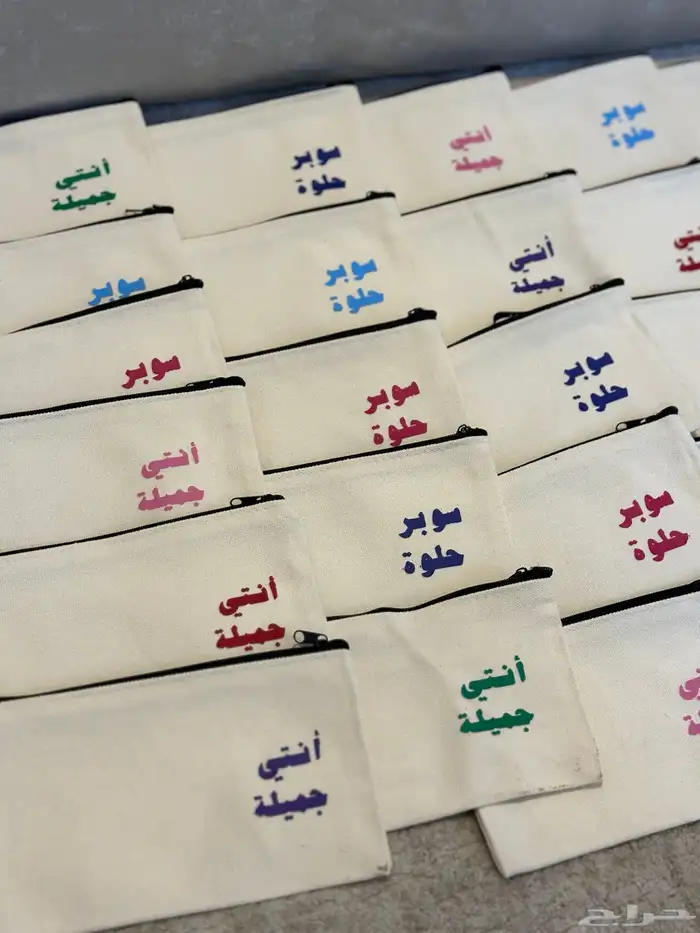 أنتي
جميلة
سوبر
حلوة
أنتي
جميلة
سوبر
حلوة
سوبر
سوبر
حلوة
أنتي
جميلة
سوبر
سوبر
حلوة
سوبر
حلوة
أنتي
جميلة
سوبر
حلوة
سوبر
حلوة
أنتي
جميلة
أنتي
جميلة
أنتي
جميلة
حراج